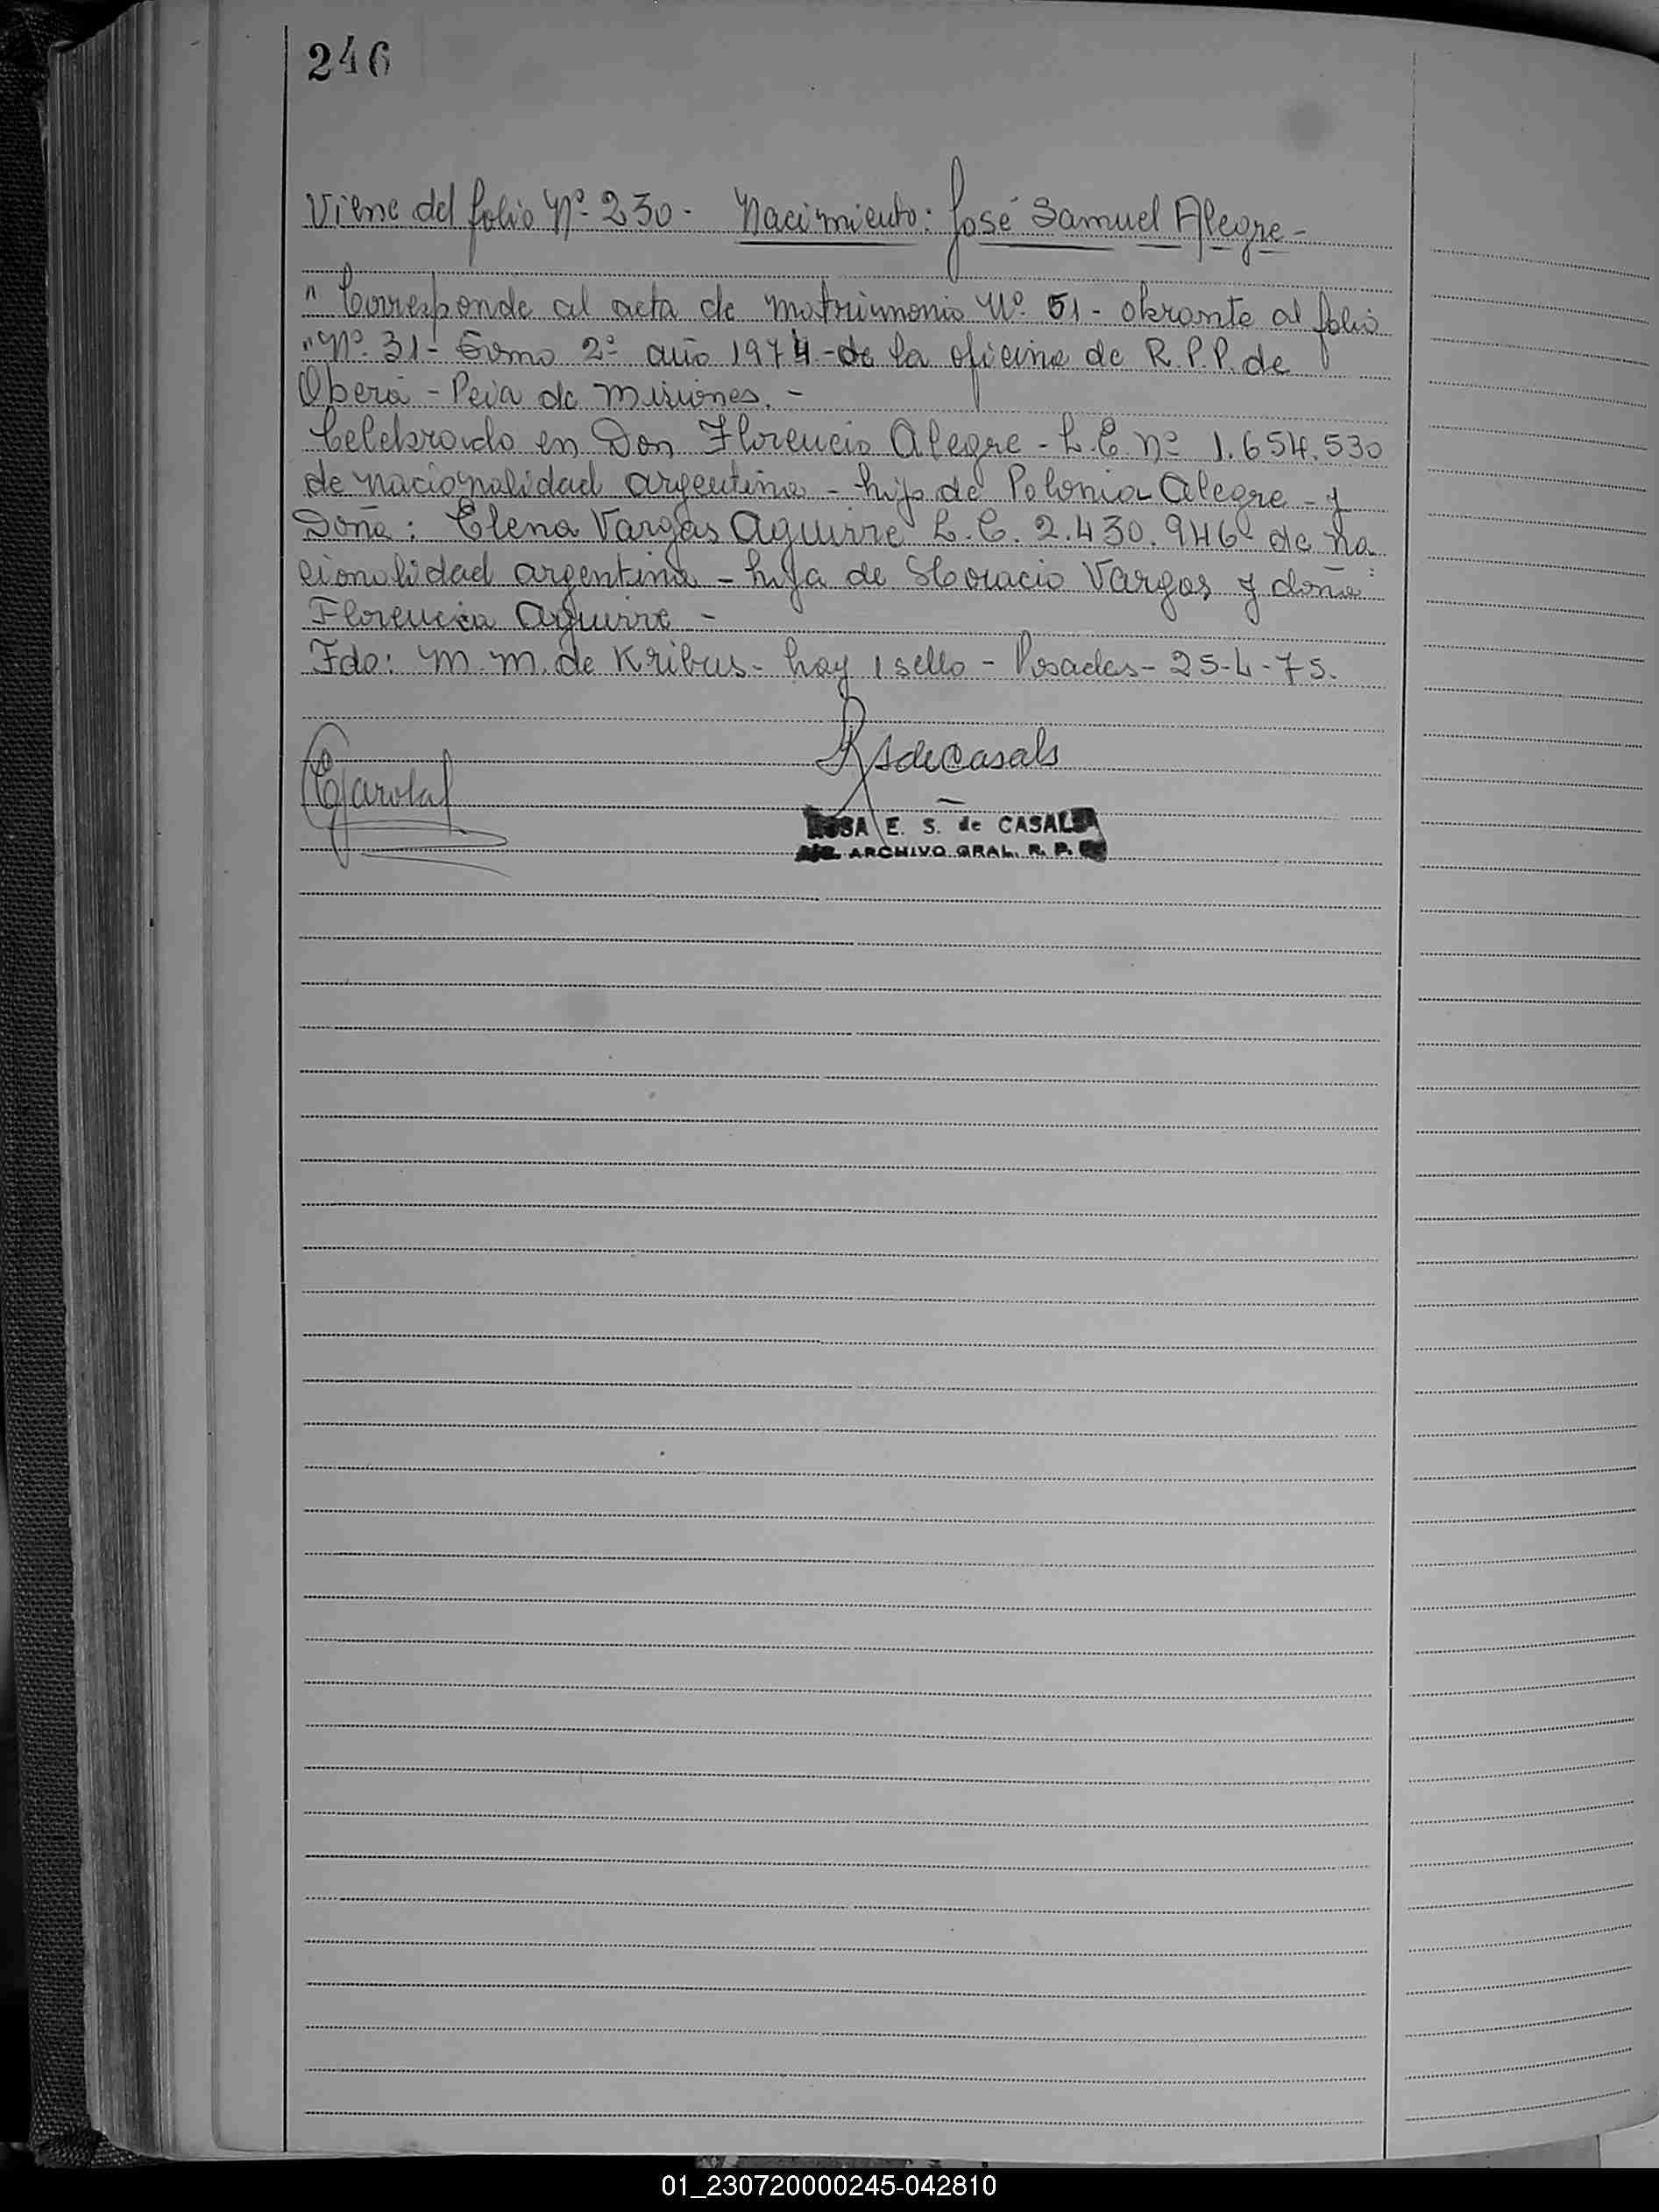 246
Viene del folio Nº 230 - Nacimiento: José Samuel Alegre -
" Corresponde al acta de matrimonio Nº 51 - obrante al folio
" Nº 31 - Tomo 2º año 1974 - de la oficina de R.P.P. de
Oberá - Pcia de Misiones. -
Celebrado en Don Florencio Alegre - L.E. nº 1.654.530
de nacionalidad argentina - hijo de Polonia Alegre - y
Doña: Elena Vargas Aguirre L.C. 2.430.946 de na
cionalidad argentina - hija de Horacio Vargas y doña:
Florencia Aguirre -
Fdo: M. M. de Kribus - hay 1 sello - Posadas - 25-4-75.
RSdeCasals
ROSA E. S. de CASALS
ARCHIVO GRAL. R. P.
01_230720000245-042810